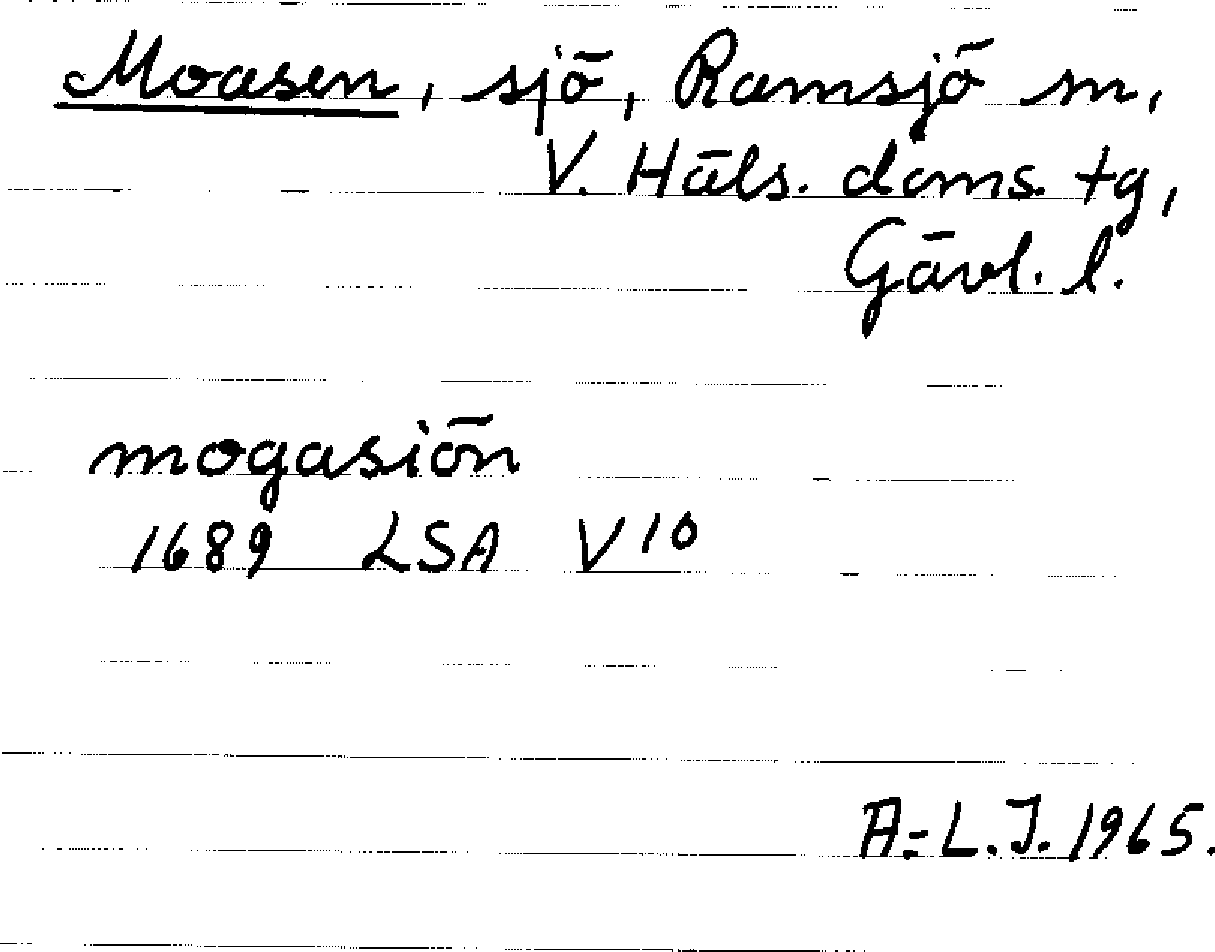 Moasen, sjö, Ramsjö sn,
V. Häls. doms. tg,
Gävl. l.
mogasiön
1689 LSA V 10
A-L.J. 1965.